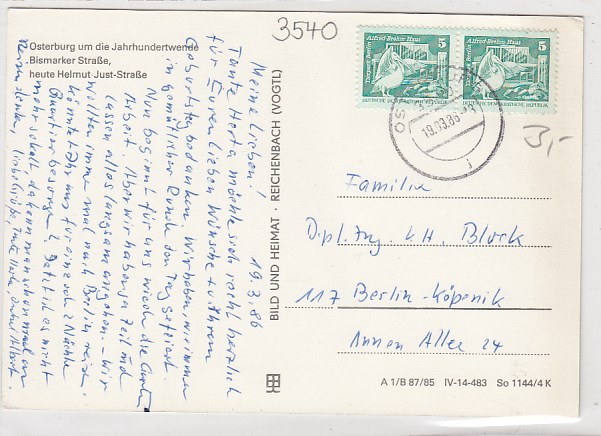 3540
Osterburg um die Jahrhundertwende
Bismarker Straße,
heute Helmut-Just-Straße
19.3.86
Meine Lieben!
Tante Herta möchte sich recht herzlich
für Euren lieben Wünsche zu ihrem
Geburtstag bedanken. Wir haben wie immer
in gemütlicher Runde den Tag gefeiert.
Nun beginnt für uns wieder die Garten
Arbeit. Aber wir haben ja Zeit und
lassen alles langsam angehen. - Wir
wollten immer mal nach Berlin reisen.
Könntet Ihr uns für eine oder 2 Nächte
Quartier besorgen? Jetzt ist es nicht
mehr so kalt, da kann man schon mal an
reisen denken. Liebe Grüße, Tante Herta, Onkel Albert.
BILD UND HEIMAT · REICHENBACH (VOGTL)
Alfred-Brehm-Haus 5
Tierpark Berlin
DEUTSCHE DEMOKRATISCHE REPUBLIK
Alfred-Brehm-Haus 5
Tierpark Berlin
DEUTSCHE DEMOKRATISCHE REPUBLIK
19.03.86
3,-
Familie
Dipl. Ing. K. H. Block
117 Berlin-Köpenik
Annen Allee 24
A 1/B 87/85 IV-14-483 So 1144/4 K